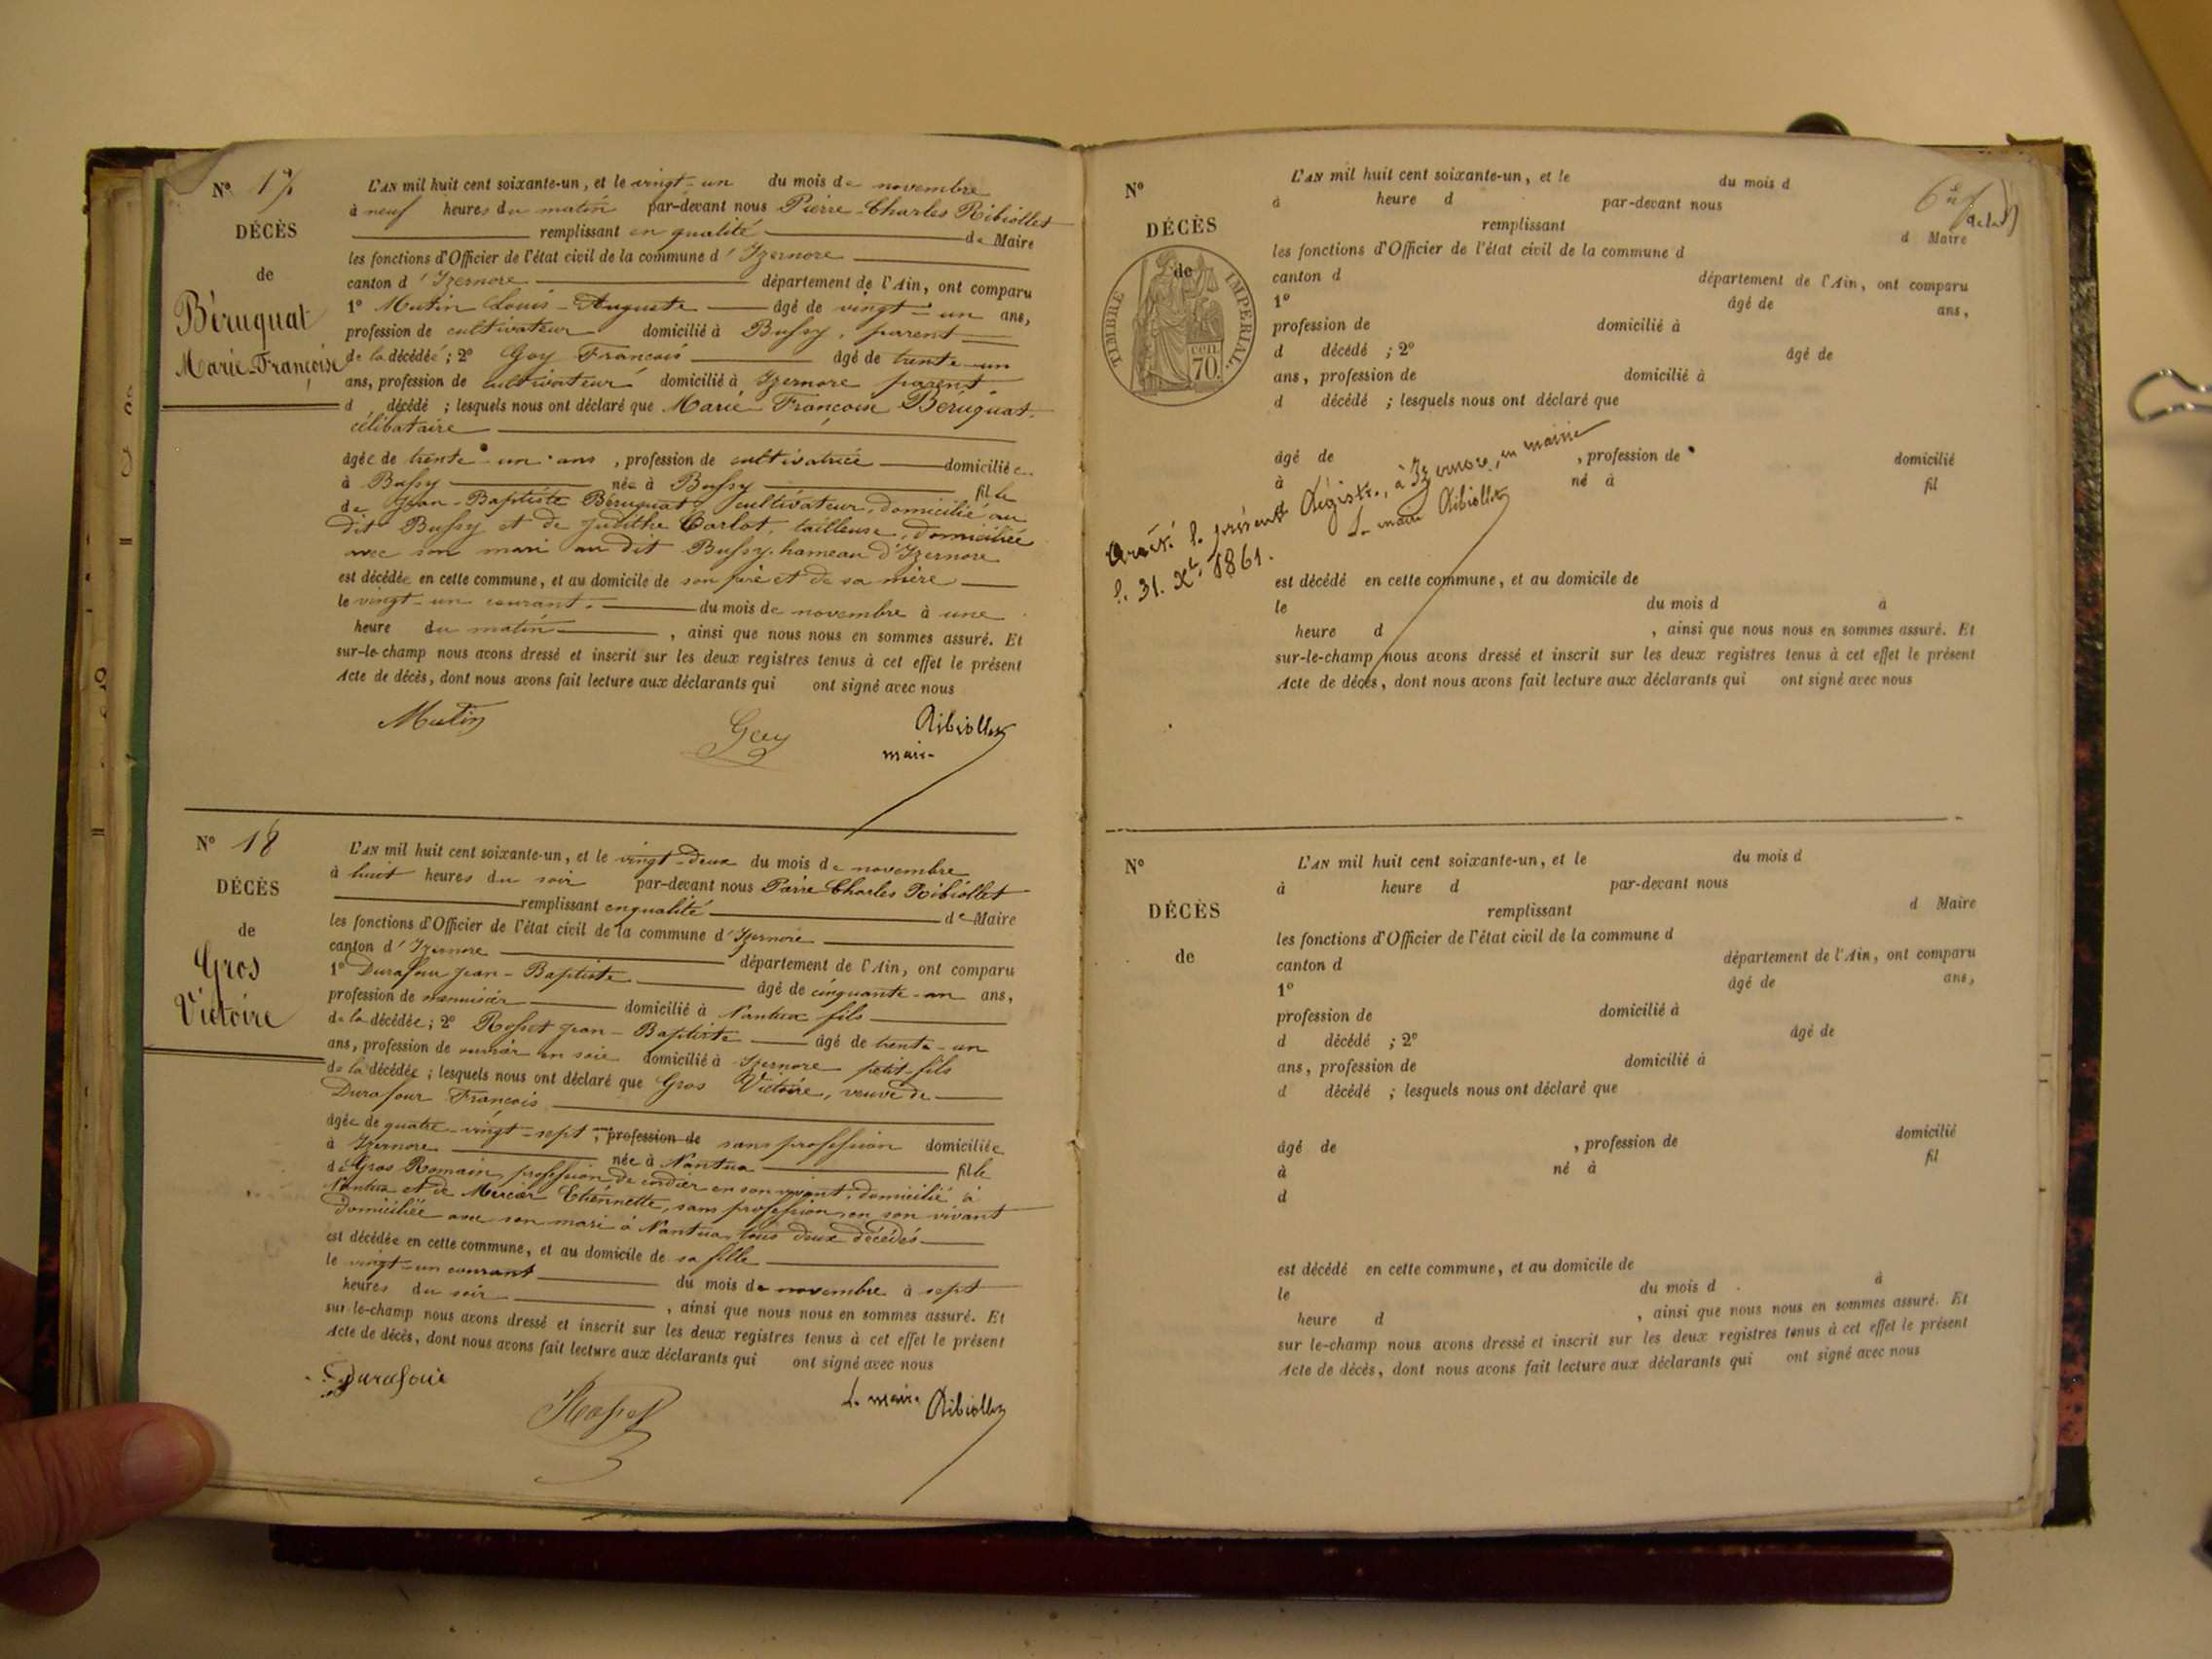 N° 17
DÉCÈS
de
Béruquat
Marie-Françoise
L'AN mil huit cent soixante-un, et le vingt-un du mois de novembre
à neuf heures du matin par-devant nous Pierre-Charles Ribiollet
remplissant en qualité de Maire
les fonctions d'Officier de l'état civil de la commune d'Izernore
canton d'Izernore département de l'Ain, ont comparu
1° Mutin Louis-Auguste âgé de vingt-un ans,
profession de cultivateur domicilié à Bussy, parent
de la décédée; 2° Goy François âgé de trente-un
ans, profession de cultivateur domicilié à Izernore parent
d décédé ; lesquels nous ont déclaré que Marie Françoise Béruquat.
célibataire
âgée de trente-un ans, profession de cultivatrice domiciliée
à Bussy née à Bussy fille
de Jean-Baptiste Béruquat, cultivateur, domicilié au
dit Bussy et de Judithe Carlot, tailleuse, domiciliée
avec son mari au dit Bussy hameau d'Izernore
est décédée en cette commune, et au domicile de son père et de sa mère
le vingt-un courant. du mois de novembre à une
heure du matin , ainsi que nous nous en sommes assuré. Et
sur-le-champ nous avons dressé et inscrit sur les deux registres tenus à cet effet le présent
Acte de décès, dont nous avons fait lecture aux déclarants qui ont signé avec nous
Mutin Goy Ribiollet
maire
N° 18
DÉCÈS
de
Gros
Victoire
L'AN mil huit cent soixante-un, et le vingt-deux du mois de novembre
à huit heures du soir par-devant nous Pierre Charles Ribiollet
remplissant en qualité de Maire
les fonctions d'Officier de l'état civil de la commune d'Izernore
canton d'Izernore département de l'Ain, ont comparu
1° Durafour Jean-Baptiste âgé de cinquante-un ans,
profession de menuisier domicilié à Nantua fils
de la décédée; 2° Rosset Jean-Baptiste âgé de trente-un
ans, profession de ouvrier en soie domicilié à Izernore petit-fils
de la décédée; lesquels nous ont déclaré que Gros Victoire, veuve de
Durafour François
âgée de quatre-vingt-sept ans, profession de sans profession domiciliée
à Izernore née à Nantua fille
de Gros Romain, profession de cordier en son vivant, domicilié à
Nantua et de Mercier Etiennette, sans profession en son vivant
domiciliée avec son mari à Nantua, tous deux décédés
est décédée en cette commune, et au domicile de sa fille
le vingt-un courant du mois de novembre à sept
heures du soir , ainsi que nous nous en sommes assuré. Et
sur-le-champ nous avons dressé et inscrit sur les deux registres tenus à cet effet le présent
Acte de décès, dont nous avons fait lecture aux déclarants qui ont signé avec nous
Durafour Rosset L. maire Ribiollet
N°
DÉCÈS
de
TIMBRE IMPÉRIAL.
cen. 70.
L'AN mil huit cent soixante-un, et le du mois d
à heure d par-devant nous
remplissant d Maire
les fonctions d'Officier de l'état civil de la commune d
canton d département de l'Ain, ont comparu
1° âgé de ans,
profession de domicilié à
d décédé ; 2° âgé de
ans, profession de domicilié à
d décédé ; lesquels nous ont déclaré que
âgé de , profession de domicilié
à né à fil
Arrêté le présent Régistre, à Izernore, en mairie
l. 31. Xbre 1861.
L. maire Ribiollet
est décédé en cette commune, et au domicile de
le du mois d à
heure d , ainsi que nous nous en sommes assuré. Et
sur-le-champ nous avons dressé et inscrit sur les deux registres tenus à cet effet le présent
Acte de décès, dont nous avons fait lecture aux déclarants qui ont signé avec nous
N°
DÉCÈS
de
L'AN mil huit cent soixante-un, et le du mois d
à heure d par-devant nous
remplissant d Maire
les fonctions d'Officier de l'état civil de la commune d
canton d département de l'Ain, ont comparu
1° âgé de ans,
profession de domicilié à
d décédé ; 2° âgé de
ans, profession de domicilié à
d décédé ; lesquels nous ont déclaré que
âgé de , profession de domicilié
à né à fil
d
est décédé en cette commune, et au domicile de
le du mois d à
heure d , ainsi que nous nous en sommes assuré. Et
sur le-champ nous avons dressé et inscrit sur les deux registres tenus à cet effet le présent
Acte de décès, dont nous avons fait lecture aux déclarants qui ont signé avec nous